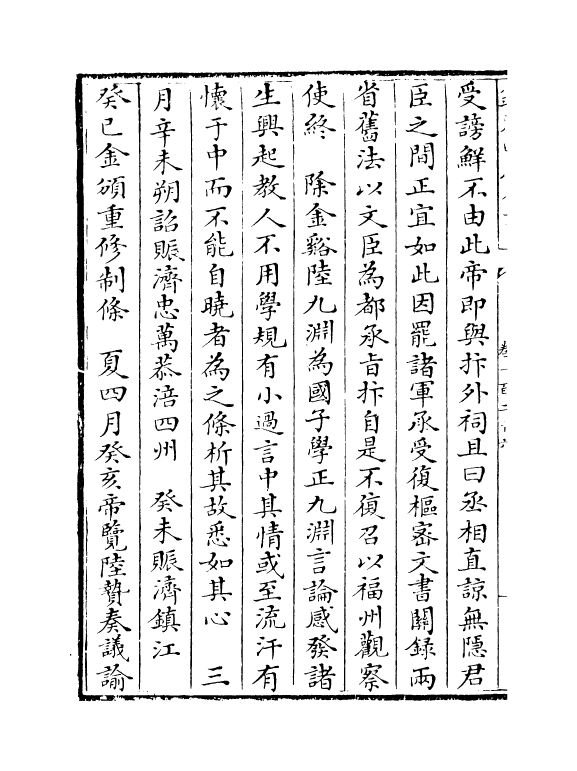 受謗鮮不由此帝即與抃外祠且曰丞相直諒無隱君
臣之間正宜如此因罷諸軍承受復樞密文書關錄兩
省舊法以文臣為都承旨抃自是不復召以福州觀察
使終　除金谿陸九淵為國子學正九淵言論感發諸
生興起教人不用學規有小過言中其情或至流汗有
懷于中而不能自曉者為之條析其故悉如其心　三
月辛未朔詔賑濟忠萬恭涪四州　癸未賑濟鎮江
癸巳金頒重修制條　夏四月癸亥帝覽陸贄奏議諭